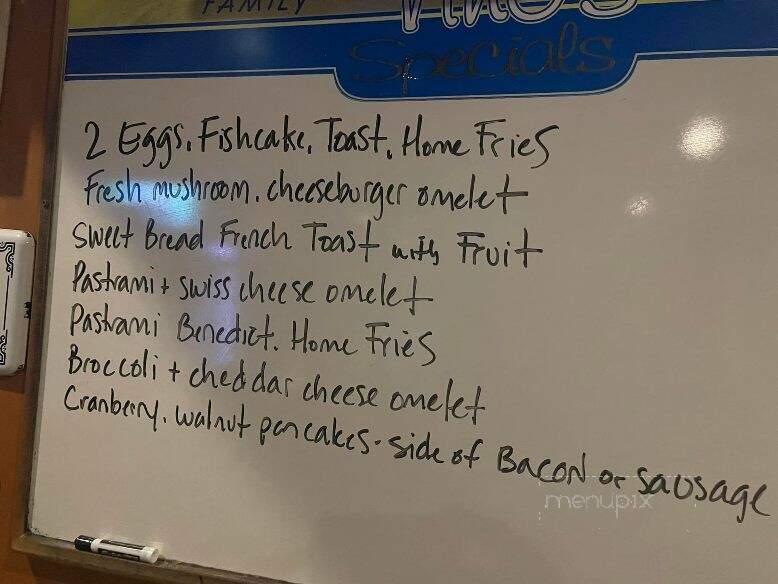 FAMILY
Specials
2 Eggs, Fishcake, Toast, Home Fries
Fresh mushroom, cheeseburger omelet
Sweet Bread French Toast with Fruit
Pastrami + swiss cheese omelet
Pastrami Benedict. Home Fries
Broccoli + cheddar cheese omelet
Cranberry, walnut pancakes - side of Bacon or sausage
menupix